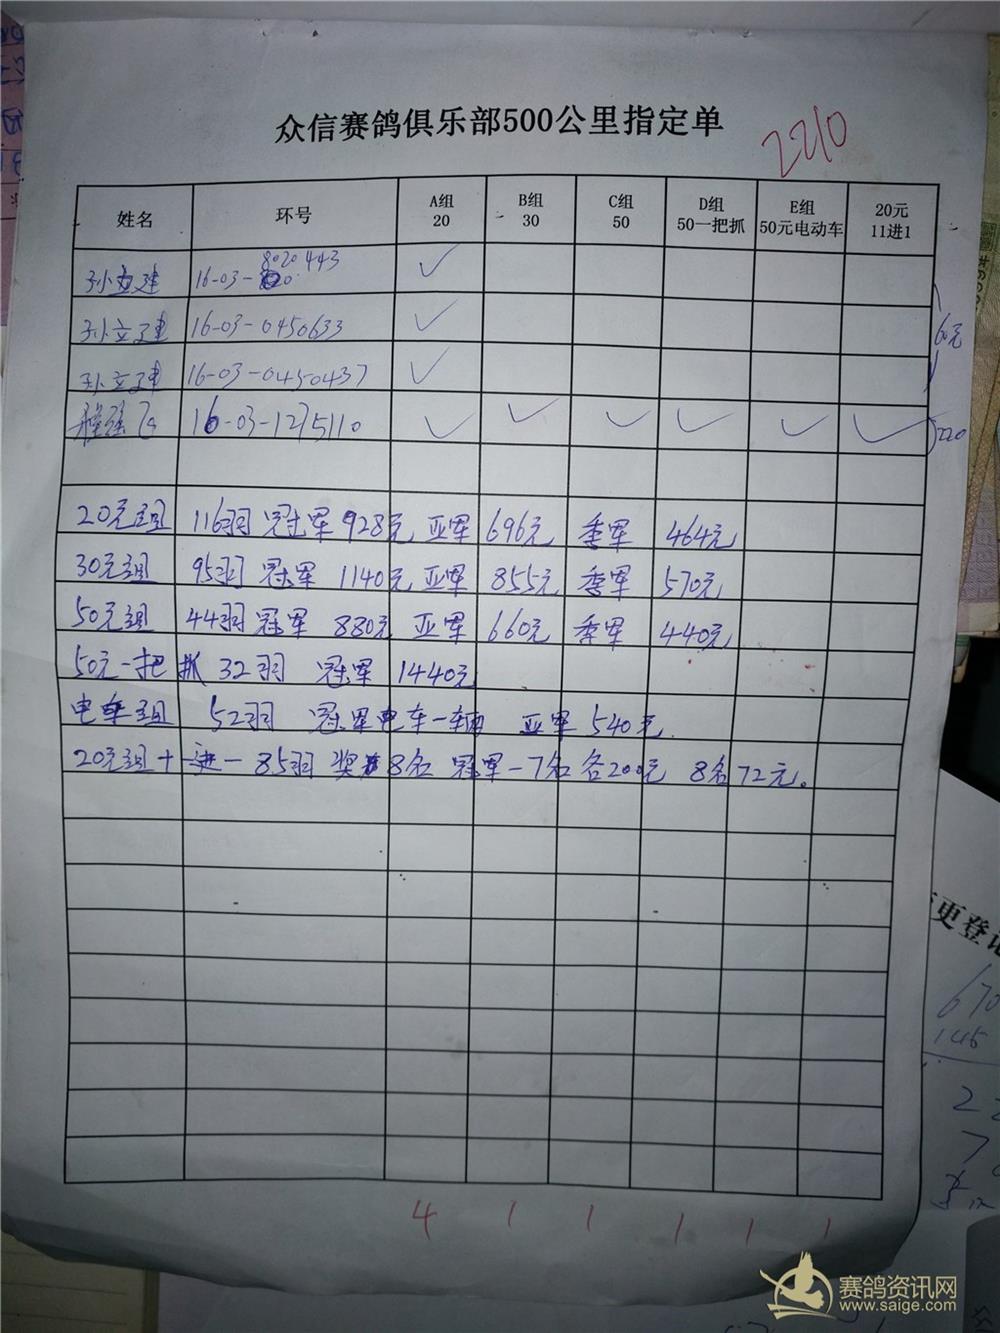 众信赛鸽俱乐部500公里指定单
2210
姓名 环号 A组 20 B组 30 C组 50 D组 50一把抓 E组 50元电动车 20元 11进1
孙立建 16-03-8020443 ✓
孙立建 16-03-0450633 ✓
孙立建 16-03-0450437 ✓
60元
程强飞 16-03-1275110 ✓ ✓ ✓ ✓ ✓ ✓ 220
20元组 116羽 冠军 928元 亚军 696元 季军 464元
30元组 95羽 冠军 1140元 亚军 855元 季军 570元
50元组 44羽 冠军 880元 亚军 660元 季军 440元
50元一把抓 32羽 冠军 1440元
电车组 52羽 冠军电车一辆 亚军 540元.
20元组十一进一 85羽 奖8名 冠军-7名 各200元 8名72元。
4 1 1 1 1 1
更登记
670
145
赛鸽资讯网
www.saige.com